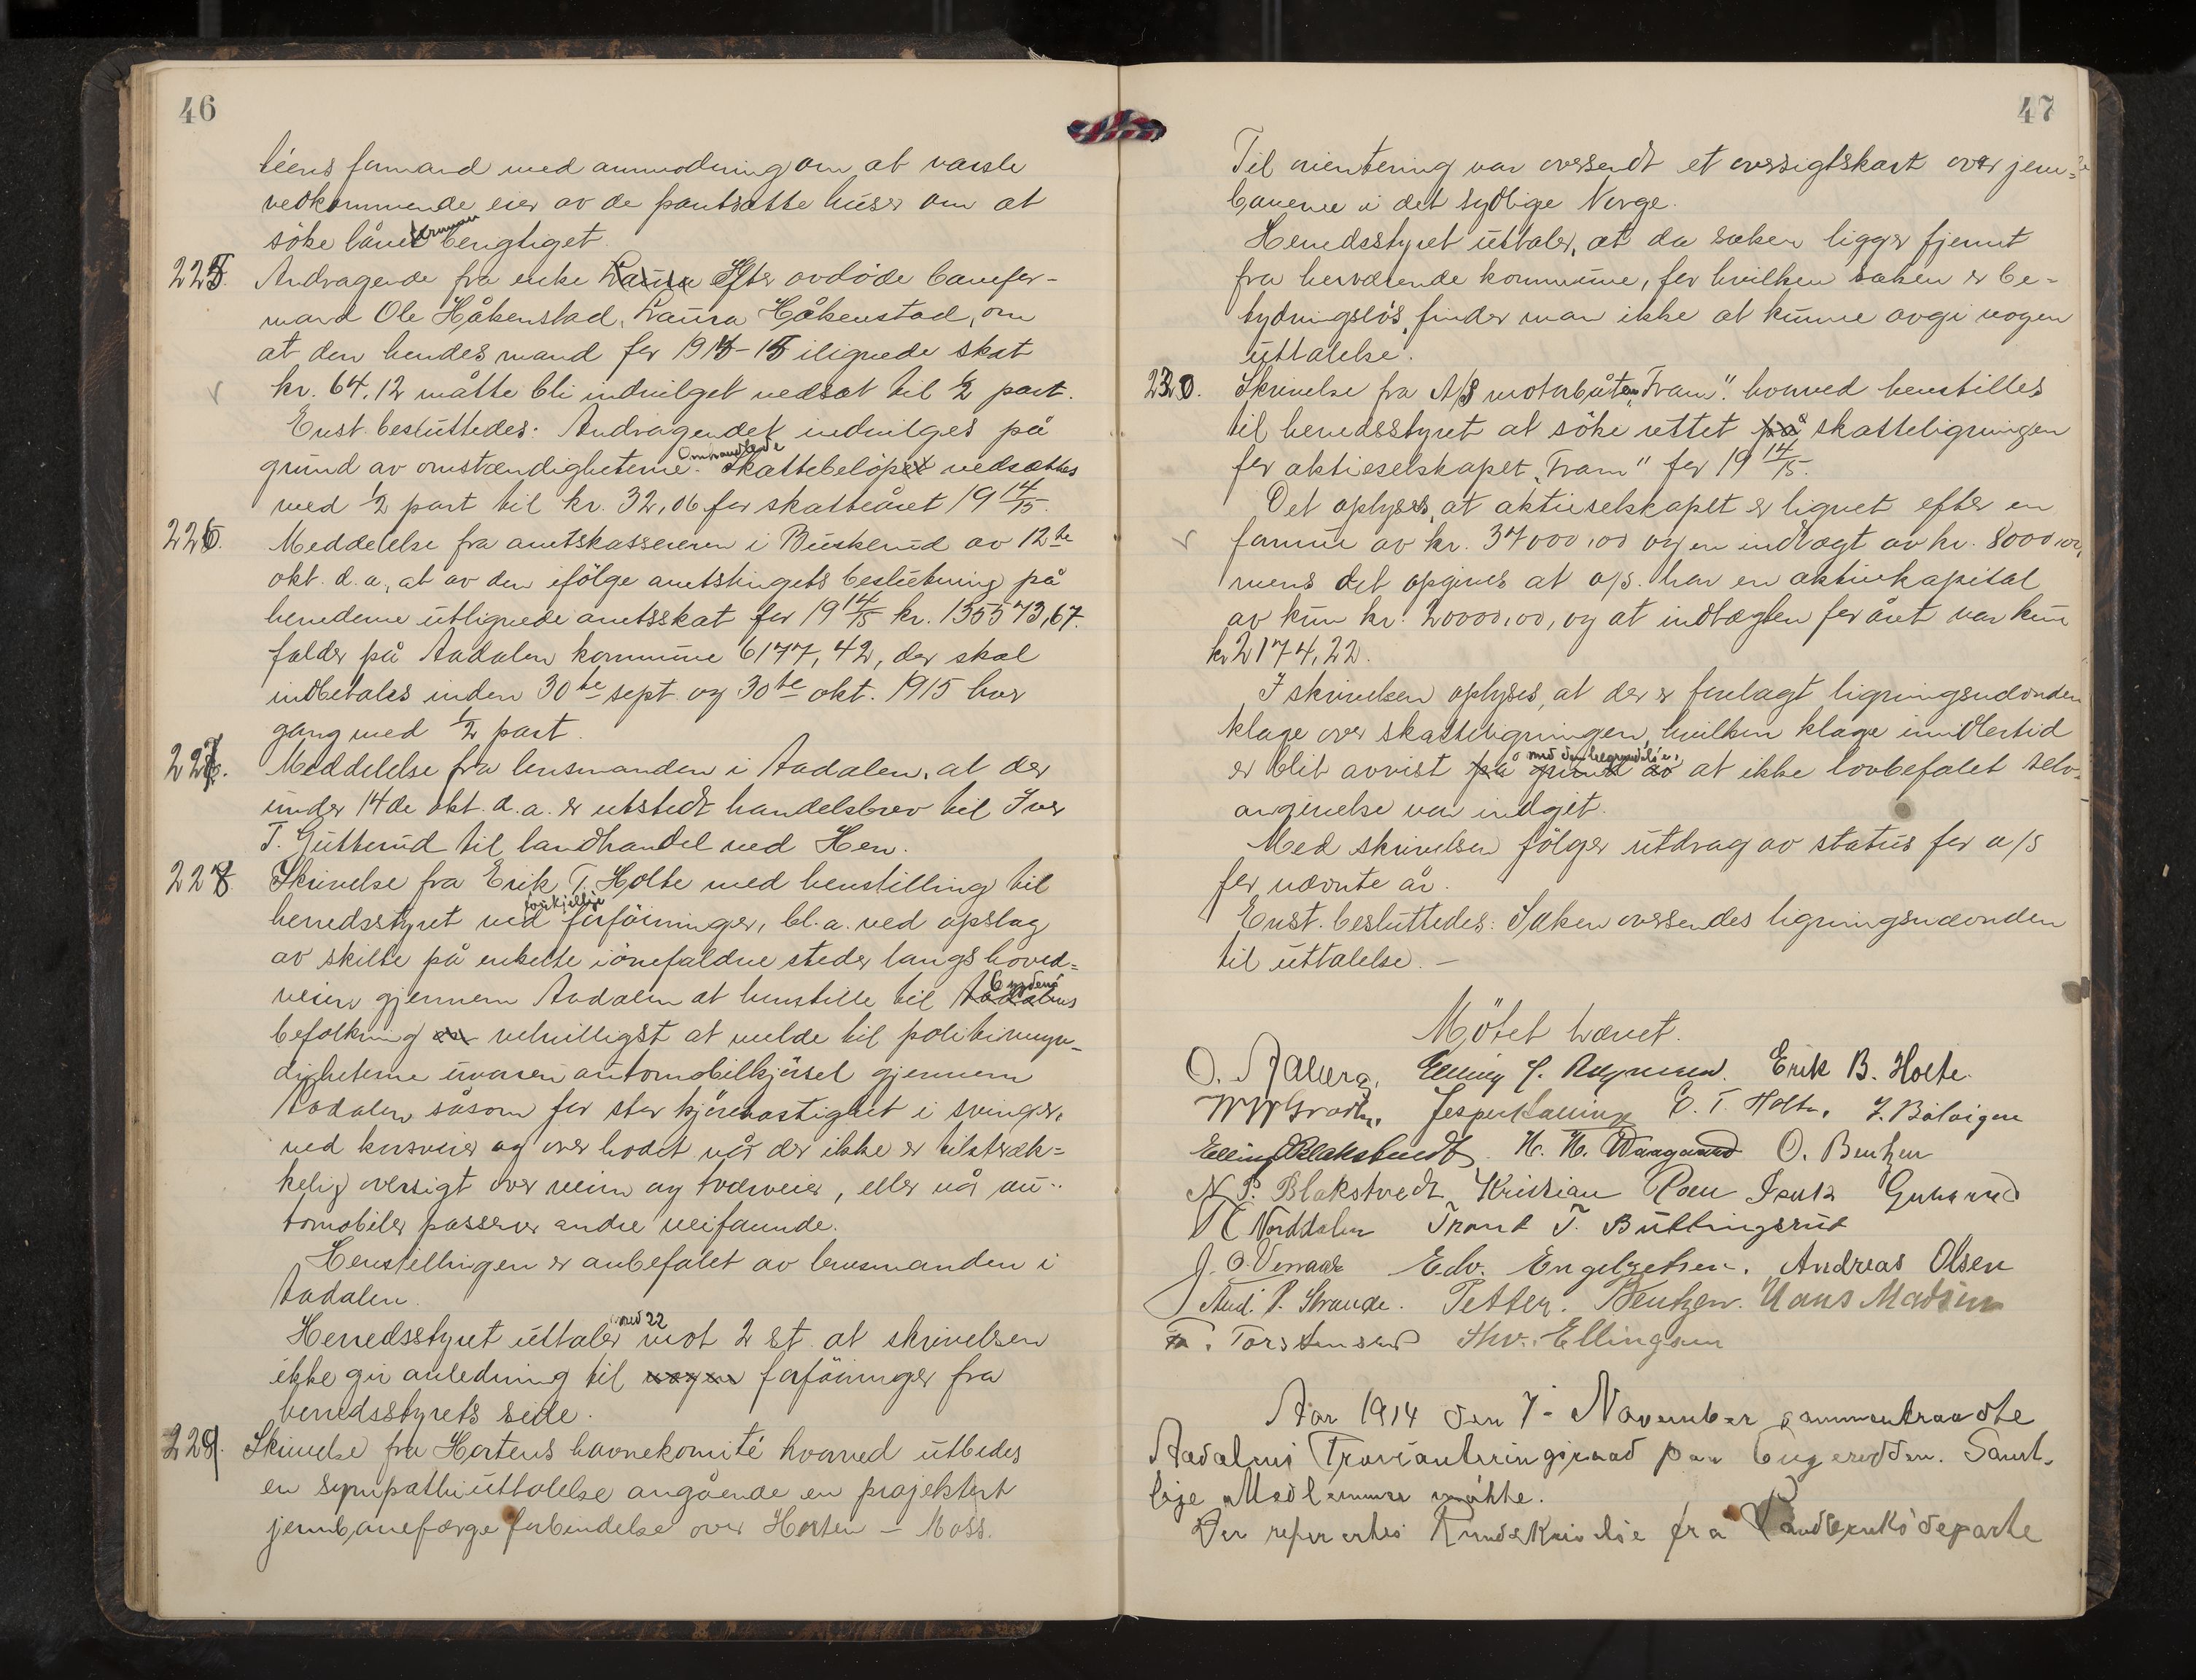 46
téens formand med anmodning om at varsle
vedkommende eier av de pantsatte huser om at
söke lånet strax berigtiget.
225. Andragende fra enke Laura efter avdöde banefor-
mand Ole Håkenstad, Laura Håkenstad, om
at den hendes mand for 1914-15 ilignede skat
kr. 64,12 måtte bli indvilget nedsat til 1/2 part.
Enst. besluttedes: Andragendet indvilges på
grund av omstændigheterne. Omhandlede skattebelöpet nedsættes
med 1/2 part til kr. 32,06 for skatteåret 19 14/15.
226. Meddelelse fra amtskassereren i Buskerud av 12te
okt. d.a., at av den ifölge amtstingets beslutning på
herredene utlignede amtsskat for 19 14/15 kr. 135573,67.
falder på Aadalen kommune 6177,42, der skal
indbetales inden 30te sept. og 30te okt. 1915 hver
gang med 1/2 part.
227. Meddelelse fra lensmanden i Aadalen, at der
under 14de okt. d.a. er utstedt handelsbrev til Iver
T. Gutterud til landhandel ved Hen.
228 Skrivelse fra Erik T. Holte med henstilling til
herredsstyret ved forskjellige forföininger, bl.a. ved opslag
av skilte på enkelte iöinefaldne steder langs hoved=
veien gjennem Aadalen at henstille til Aadalens bygdens
befolkning om velvilligst at melde til politimyn-
digheterne uvoren automobilkjörsel gjennem
Aadalen såsom for stor kjörehastighet i svinger,
ved korsveier og over hodet når der ikke er tilstræk=
kelig oversigt over veien og tverveier, eller når au-
tomobiler passerer andre veifarende.
Henstillingen er anbefalet av lensmanden i
Aadalen.
Herredsstyret uttaler med 22 mot 2 st. at skrivelsen
ikke gir anledning til nogen forföininger fra
herredsstyrets side.
229. Skrivelse fra Hortens havnekomité hvorved utbedes
en sympathiuttalelse angående en projektert
jernbanefærgeforbindelse over Horten – Moss.
47
Til orientering var oversendt et oversigtskart over jern=
banerne i det sydlige Norge.
Herredsstyret uttaler, at da saken ligger fjernt
fra herværende kommune, for hvilken saken er be-
tydningslös, finder man ikke at kunne avgi nogen
uttalelse.
230. Skrivelse fra A/S motorbåten „Fram". hvorved henstilles
til herredsstyret at söke rettet på skatteligningen
for aktieselskapet „Fram" for 19 14/15.
Det oplyses, at aktieselskapet er lignet efter en
formue av kr. 37000,00 og en indtægt av kr. 8000,00,
mens det opgives at a/s. har en aktiekapital
av kun kr. 20000,00, og at indtægten for året var kun
kr 2174,22.
I skrivelsen oplyses, at der er forelagt ligningsnævnden
klage over skatteligningen, hvilken klage imidlertid
er blit avvist på grund av med den begrundelse, at ikke lovbefalet selv-
angivelse var indgit.
Med skrivelsen fölger utdrag av status for a/s
for nævnte år.
Enst. besluttedes: Saken oversendes ligningsnævnden
til uttalelse. –
Mötet hævet.
O. Aalberg, Elling Erik B. Holte.
Jesper E. T. Holte,
Elling Blakstvedt. H. H. Waagaard O. Bentzen
N. P. Blakstvedt Kristian Roen
Norddalen Trond T. Buttingsrud
J. O. Edv. Engebretsen. Andreas Olsen
And. P. Strande. Petter. Bentzen. Hans Madsen
Torstensen Thv. Ellingsen
Aar 1914 den 7- November sammentraadte
Aadalens Provianteringsraad paa Samt-
lige Medlemmer mötte.
Der refertes Rundskrivelse fra Landbruksdeparte